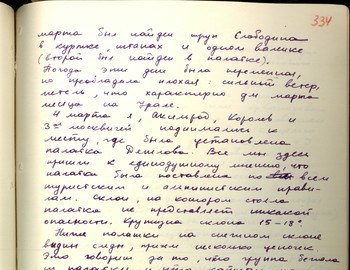 334
марта был найден труп Слободина
в куртке, штанах и одном валенке
(второй был найден в палатке).
Погода эти дни была переменная,
но преобладала плохая: сильный ветер,
метель, что характерно для марта
месяца на Урале.
4 марта я, Аксельрод, Королев и
3ое москвичей поднимались к
месту, где была установлена
палатка Дятлова. Все мы здесь
пришли к единодушному мнению, что
палатка была поставлена по всем
туристским и альпинистским прави-
лам. Склон, на котором стояла
палатка не представляет никакой
опасности. Крутизна склона 15-18°.
Ниже палатки на снежном склоне
видны следы, причем несколько цепочек.
Это говорит за то, что группа бежала
от палатки